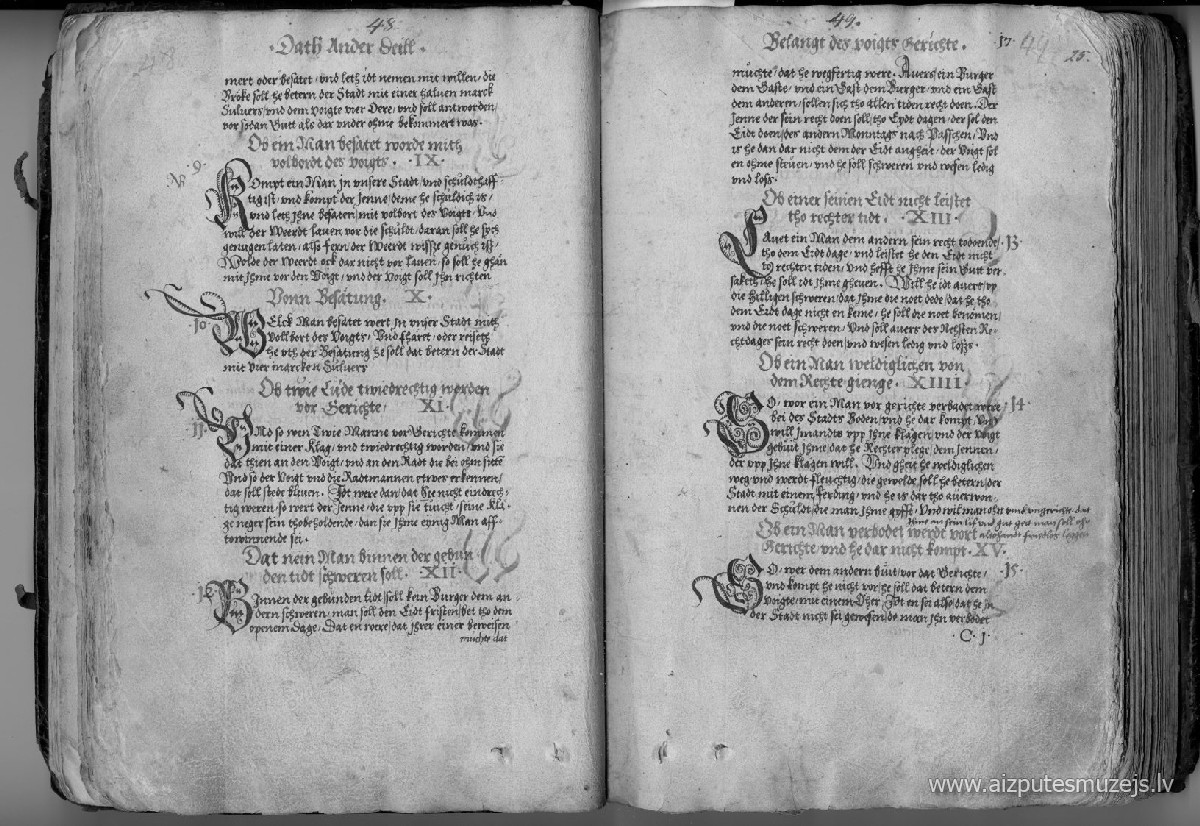 48.
Dath Ander Deill.
mert oder besätet, vnd leth idt nemen mit willen, die
Bröke soll he betern der Stadt mit einer haluen marck
Suluers, vnd dem Voigte vier Oere, vnd soll antworden,
vor sodan Gutt als dar vnder ohme bekommert was.
Ob ein Man besätet worde mith
volbordt des voigts. IX.
No. 9.
Kompt ein Man in vnsere Stadt, vnd schuldthaff
tig ist, vnd kompt der Jenne, deme he schuldich is,
vnd leth Jhne besaten, mit volbort des Voigts, Vnd
will der Weerdt lauen vor die schuldt, daran soll he sych
genugen laten, also fern der Weerdt wysse genuch ist,
Wolde der Weerdt ock dar nicht vor lauen, so soll he ghan
mit Jhme vor den Voigt, vnd der Voigt soll Jhn richten
Vonn Besätung. X.
10
Welck Man besätet wert Jn vnser Stadt mith
vollbort des Voigts, Vnd fharet, oder reiseth
he vth der Besätung he soll dat betern der Stadt
mit vier marcken Suluers
Ob twie Lude twiedrechtig worden
vor Gerichte, XI.
11
Vnd so wen Twie Manne vor Gerichte kommen
mit einer Klag, vnd twiedrechtig worden, vnd sie
dat thien an den Voigt, vnd an den Radt die bei ohm sitten
Vnd so der Voigt vnd die Radtmannen etwes erkennen,
dat soll stede bliuen. Idt were dan, dat Sie nicht eindrech,
tig weren, so wert der Jenne, die vpp sie tücht, seine Kla,
ge neger sein tho beholdende, dan sie Jhme eynig Man aff,
towinnende sei.
Dat nein Man binnen der gebun
den tidt schweren soll. XII.
12
Binnen der gebunden tidt soll kein Burger dem an,
dern schweren, man soll den Eidt fristen, bet tho dem
openem Dage, Dat en were, dat Jhrer einer beweisen
muchte dat
49.
Belangt des voigts Gerichte.
25.
muchte, dat he wegfertig were. Auers ein Burger
dem Gaste, vnd ein Gast dem Burger, vnd ein Gast
dem anderen, sollen sich tho allen tiden recht doen. Der
Jenne der sein recht doen soll, tho Eydt dagen, der sol den
Eidt doen, des andern Monntags nach Passchen, Vnd
is he dan dar nicht dem der Eidt angheit, der Voigt sol
en ohme steuen, vnd he soll schweren vnd wesen ledig
vnd loss.
Ob einer seinen Eidt nicht leistet
tho rechter tidt. XIII.
13.
Lauet ein Man dem andern sein recht todoende,
tho dem Eidt dage, vnd leistet he den Eidt nicht
to rechten tiden, vnd hefft he Jhme sein Gutt ver,
saketh, he soll idt Jhme gheuen. Will he idt auers, vp
die Hilligen schweren, dat Jhme die noet dede, dat he tho
dem Eidt dage nicht en keme, he soll die noet benomen,
vnd die noet schweren, Vnd soll auers des Nehsten Re,
chtdages sein recht doen, vnd wesen ledig vnd loss.
Ob ein Man weldiglichen von
dem Rechte gienge. XIIII.
14.
So, wor ein Man vor gerichte verbadet wert
bei des Stadts Boden, vnd he dar kompt,
will Jmandts vpp Jhne klagen, vnd der Voigt
gebüt Jhme, dat he Rechtes plege, dem Jennen,
der vpp Jhne klagen will. Vnd gheit he weldiglichen
weg vnd werdt fleuchtig, die gewolde soll he betern, der
Stadt mit einem ferding, vnd he is dar tho auerwon,
nen der Schuldt, die man Jhme gyfft.
Ob ein Man verbodet werdt vort
Gerichte, vnd he dar nicht kompt. XV.
15.
So, wer dem andern büüt, vor dat Gerichte,
vnd kompt he nicht vor, he soll dat betern dem
Voigte, mit einem Öher, Idt en sei also, dat he in
der Stadt nicht sei gewesen, do man Jhn verbodet
C. j.
www.aizputesmuzejs.lv